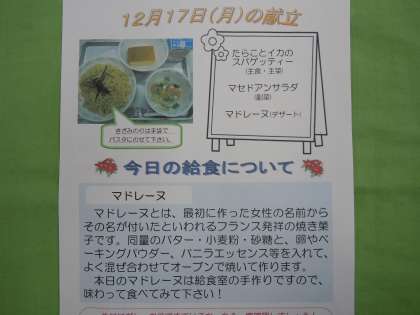 12月17日(月)の献立
たらことイカの
スパゲッティー
(主食・主菜)
マセドアンサラダ
(副菜)
マドレーヌ(デザート)
きざみのりは手袋で
パスタにのせて下さい。
今日の給食について
マドレーヌ
マドレーヌとは、最初に作った女性の名前から
その名が付いたといわれるフランス発祥の焼き菓
子です。同量のバター・小麦粉・砂糖と、卵やベ
ーキングパウダー、バニラエッセンス等を入れて、
よく混ぜ合わせてオーブンで焼いて作ります。
本日のマドレーヌは給食室の手作りですので、
味わって食べてみて下さい!